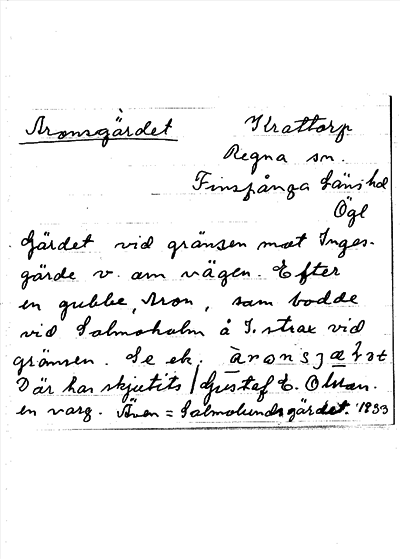 Aronsgärdet Krattorp
Regna sn.
Finspånga länshd
Ögl
Gärdet vid gränsen mot Inges-
gärde v. om vägen. Efter
en gubbe, Aron, som bodde
vid Salmoholm å I. strax vid
gränsen. Se ek. àronsjæ̀ḷət
Där har skjutits / Gustaf E. Olsson.
en varg. Även = Salmolundsgärdet. 1933